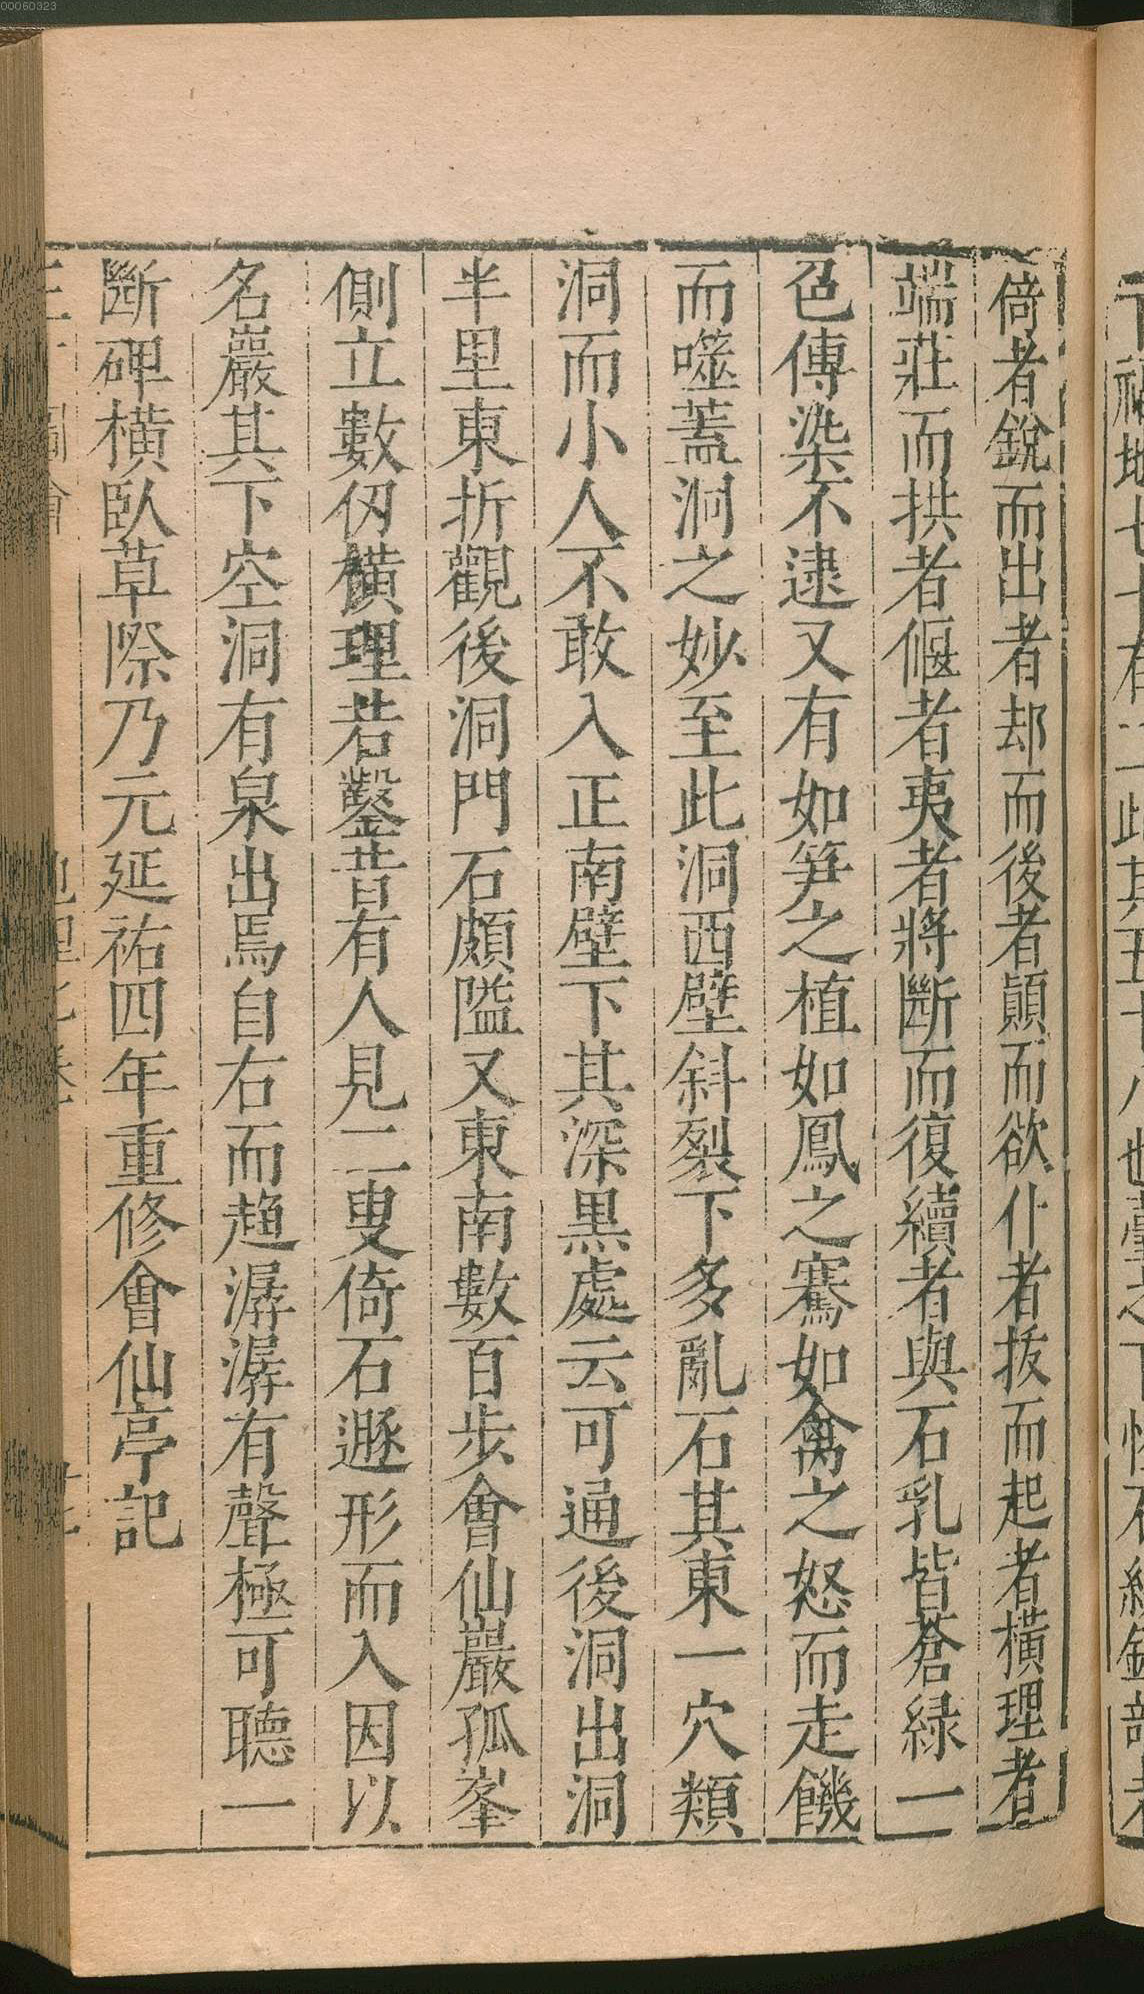 倚者銳而出者却而後者顚而欲仆者拔而起者橫理者
端莊而拱者偃者夷者將斷而復續者與石乳皆蒼綠一
色傳染不逮又有如笋之植如鳳之騫如禽之怒而走饑
而噬蓋洞之妙至此洞西壁斜裂下多亂石其東一穴類
洞而小人不敢入正南壁下其深黒處云可通後洞出洞
半里東折觀後洞門石頗隘又東南數百步會仙巖孤峯
側立數仭橫理若鑿昔有人見二叟倚石遯形而入因以
名巖其下空洞有泉出焉自右而趨潺潺有聲極可聽一
斷碑橫臥草際乃元延祐四年重修會仙亭記
00060323